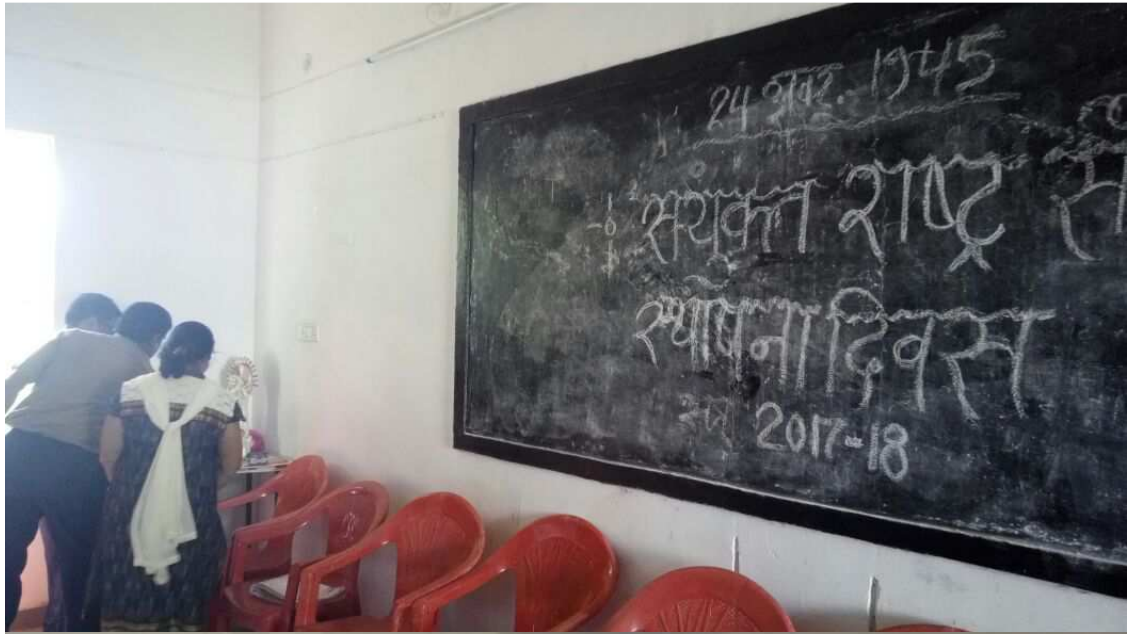 24 अक्टू. 1945
संयुक्त राष्ट्र सं
स्थापना दिवस
सत्र 2017-18